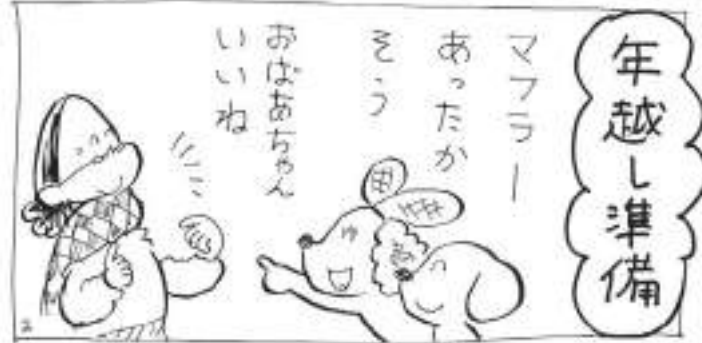 年越し準備
マフラー
あったか
そう
おばあちゃん
いいね